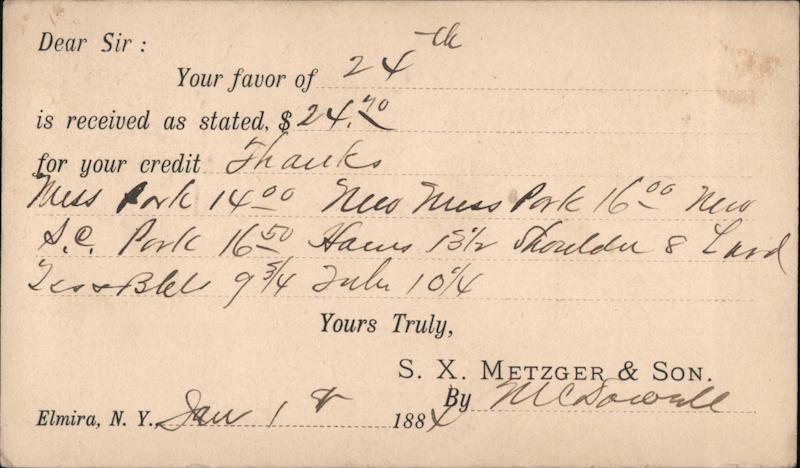 Dear Sir:
Your favor of 24th
is received as stated, $24.70
for your credit Thanks
Mess Pork 14 00 New Mess Pork 16 00 New
S.C. Pork 16 50 Hams 13 1/2 Shoulder 8 Lard
Tcs & Bbls 9 3/4 Tubs 10 1/4
Yours Truly,
S. X. METZGER & SON.
By McDowell
Elmira, N. Y., Jan 1st 1884